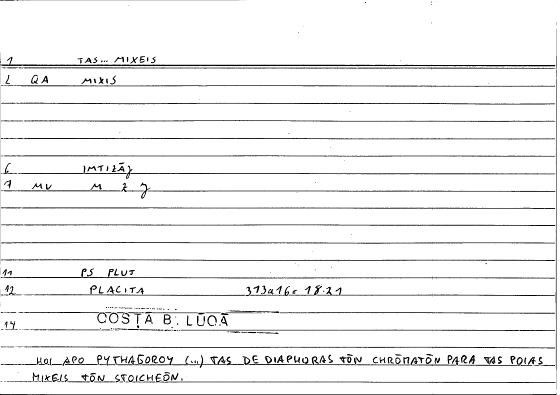 1 TAS... MIXEIS
L QA MIXIS
6 IMTIZĀJ
7 MV M Z J
11 PS PLUT
12 PLACITA 313a16= 18.21
14 COSṬĀ B. LŪQĀ
HOI APO PYTHAGOROY (...) TAS DE DIAPHORAS TŌN CHRŌMATŌN PARA TAS POIAS
MIXEIS TŌN STOICHEŌN.